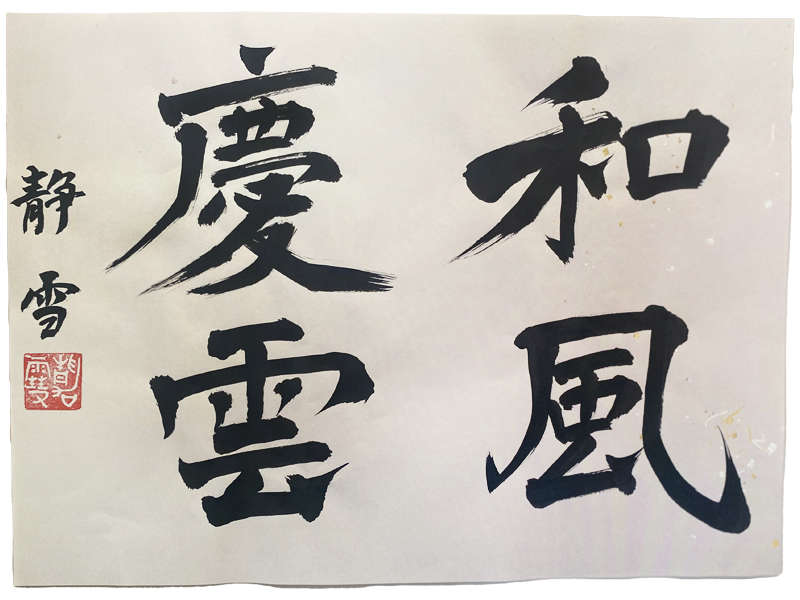 和風
慶雲
静雪